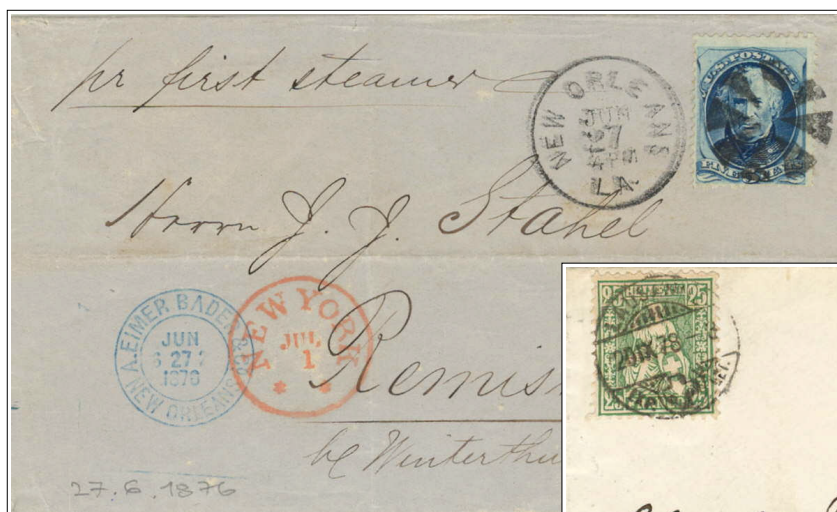 pr first steamer
NEW ORLEANS
JUN
27
4 PM
LA.
U.S. POSTAGE
Herrn J. J. Stahel
A. EIMER BADER
JUN
27
1876
NEW ORLEANS
NEW YORK
JUL
1
25
25
Remis
be Winterthu
27.6.1876